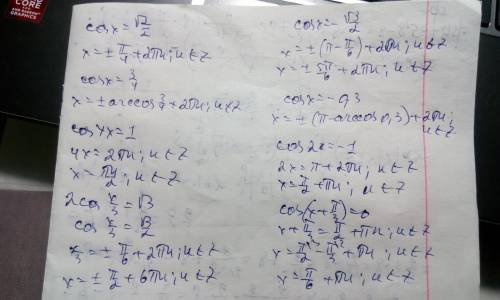 CORE
GRAPHICS
cosx = √2/2
x = ± π/4 + 2πn; n ∈ Z
cosx = 3/4
x = ± arccos 3/4 + 2πn; n ∈ Z
cos4x = 1
4x = 2πn; n ∈ Z
x = πn/2; n ∈ Z
2cos x/3 = √3
cos x/3 = √3/2
x/3 = ± π/6 + 2πn; n ∈ Z
x = ± π/2 + 6πn; n ∈ Z
cosx = - √3/2
x = ± (π - π/6) + 2πn; n ∈ Z
x = ± 5π/6 + 2πn; n ∈ Z
cosx = -0,3
x = ± (π - arccos 0,3) + 2πn;
n ∈ Z
cos2x = -1
2x = π + 2πn; n ∈ Z
x = π/2 + πn; n ∈ Z
cos(x + π/3) = 0
x + π/3 = π/2 + πn; n ∈ Z
x = π/2 - π/3 + πn; n ∈ Z
x = π/6 + πn; n ∈ Z